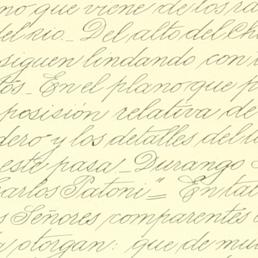 no que viene de los ra
del rio_ Del alto del Ch
siguen lindando con
tos_ En el plano que p
posisión relativa de
dero" y los detalles del
este pasa_ Durango
Carlos Patoni"= En tal
s Señores comparentes
otorgan: que de mu